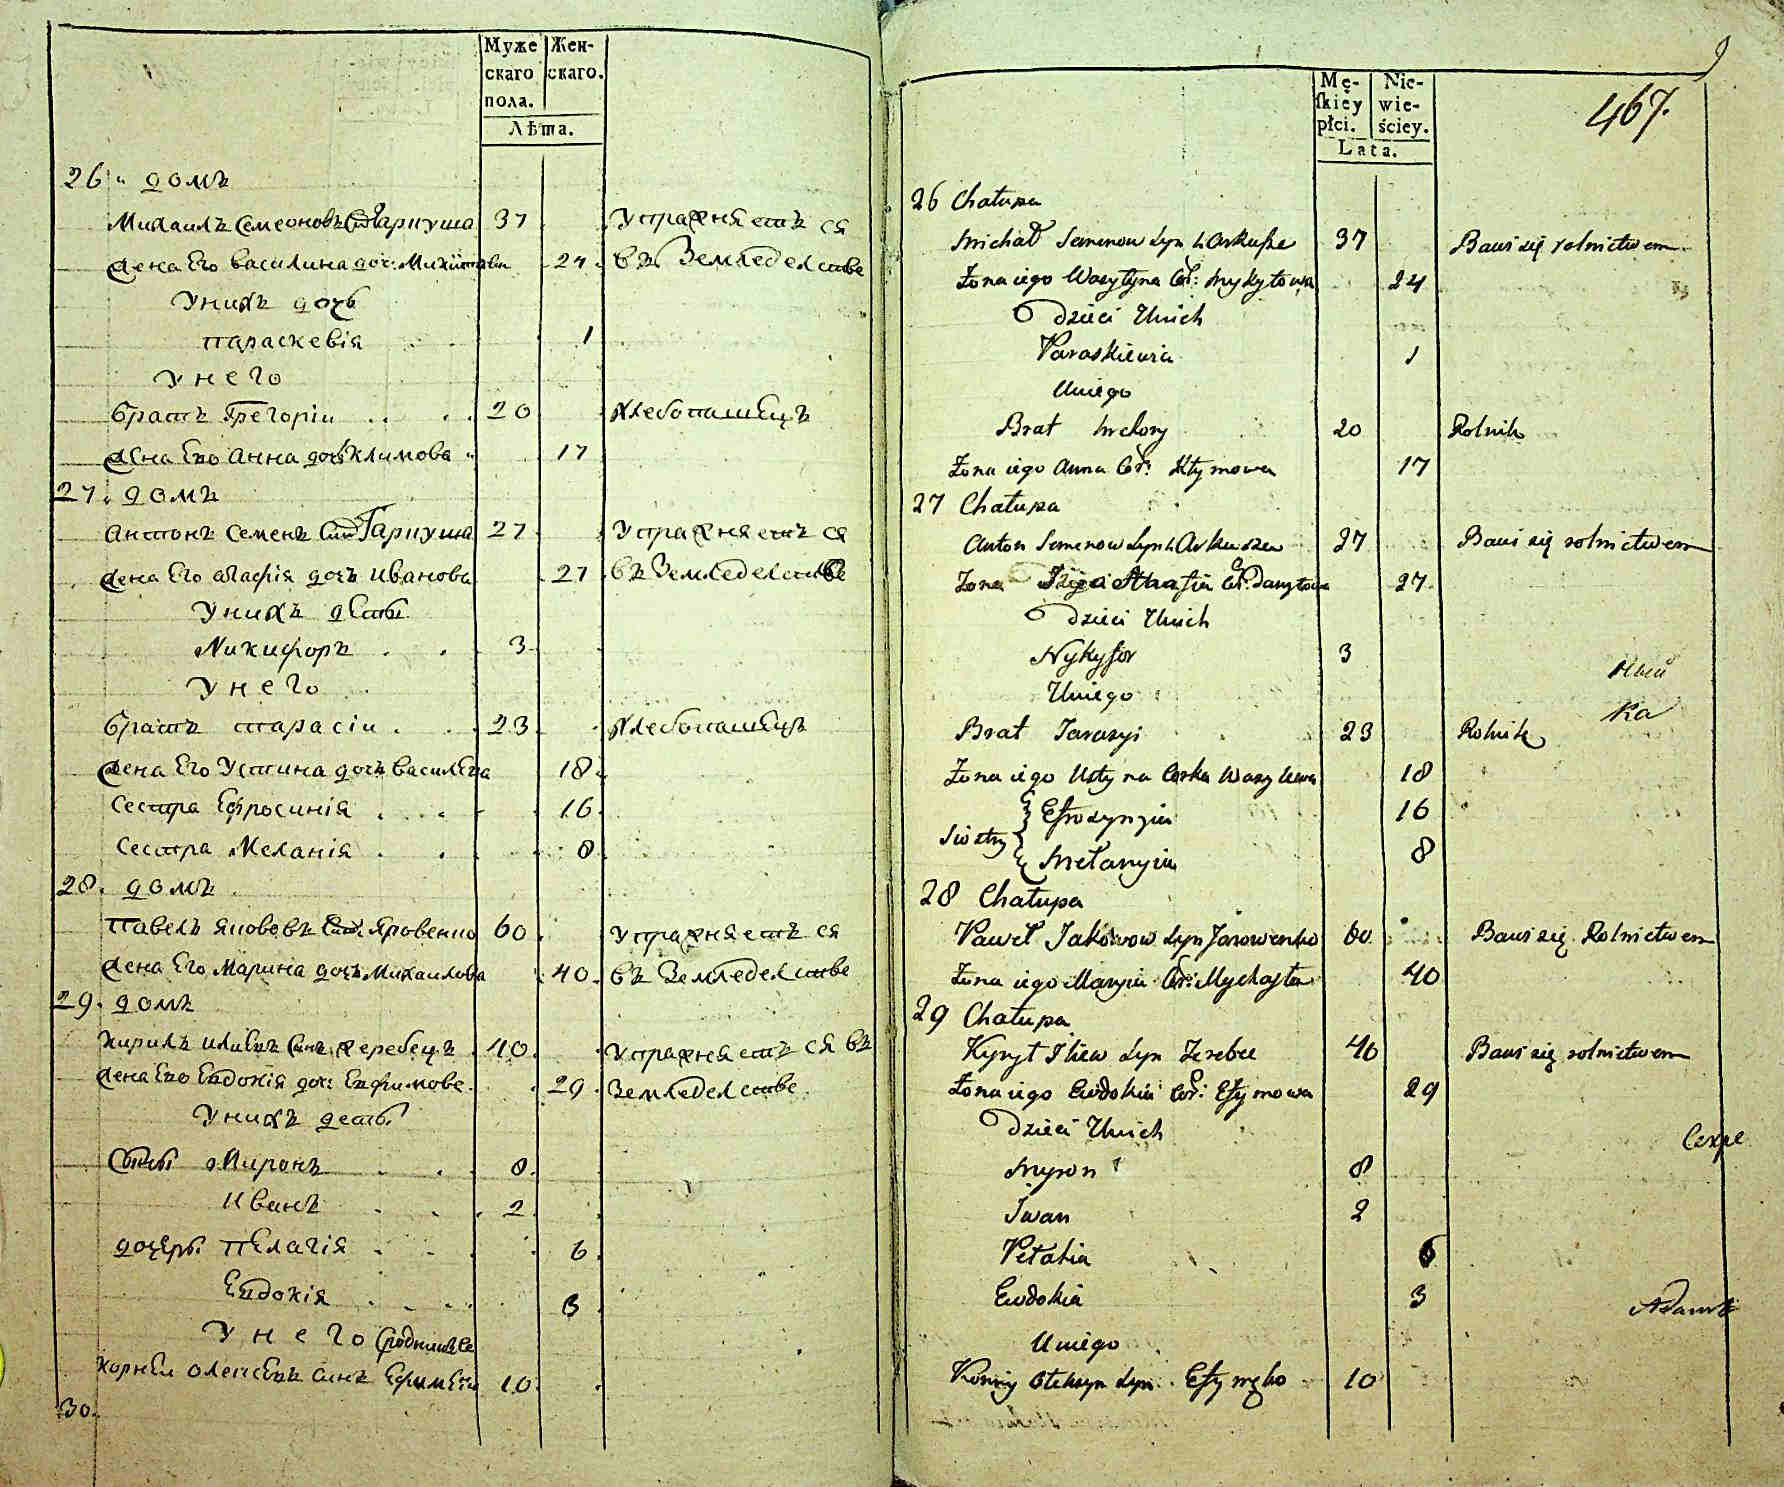 Муже Жен-
скаго скаго.
пола.
Лѣта.
26 " домъ
Михаилъ Семеоновъ Сынъ Гаркуша 37 Упражняетъ ся
жена Его Василина доч: Микитова 24 въ Земледелстве
У нихъ дочь
Параскевія 1
У него
братъ Грегорій 20 Хлебопашецъ
жена Его Анна дочь Климова 17
27. домъ
Антонъ Семенъ Сынъ Гаркуша 27 Упражняетъ ся
жена Его Агафія дочь Иванова 27 въ Земледелстве
У нихъ дети
Никифоръ 3
У него
братъ Тарасій 23 Хлебопашецъ
жена Его Устина дочь Василева 18
Сестра Ефросинія 16
Сестра Меланія 8
28. домъ
Павелъ Яковъ Сынъ Яровенко 60 Упражняетъ ся
жена Его Марина дочь Михаилова 40 въ Земледелстве
29. домъ
Кирилъ Илиевъ Сынъ Жеребецъ 40 Упражняетъ ся въ
жена Его Евдокія доч: Ефимова 29 Земледелстве
У нихъ дети
Сыны Миронъ 8
Иванъ 2
дочери Пелагія 6
Евдокія 3
У него
Корней Олексеевъ Синъ 10
30.
9
Mę- Nie-
skiey wie-
płci. ściey.
Lata.
467.
26 Chałupa
Michał Semenow Syn Harkusza 37 Bawi się rolnictwem
Żona iego Wasylyna Cór: Mykytowa 24
Dzieci U nich
Paraskiewia 1
U niego
Brat Hrehory 20 Rolnik
Żona iego Anna Cór: Kłymowa 17
27 Chałupa
Anton Semenow Syn Harkusza 27 Bawi się rolnictwem
Żona Iego Ahafia Cór: 27
Dzieci U nich
Nykyfor 3
U niego
Brat Tarasyi 23 Rolnik
Żona iego Ustyna Córka Wasylewa 18
Siostry Efrosynyia 16
Mełanyia 8
28 Chałupa
Paweł Jakowow Syn Jarowenko 60 Bawi się Rolnictwem
Żona iego Maryia Cór: Mychayła 40
29 Chałupa
Kyrył Iliew Syn Żerebec 40 Bawi się rolnictwem
Żona iego Ewdokia Cór: Efymowa 29
Dzieci U nich
Myron 8
Iwan 2
Pełahia 6
Ewdokia 3
U niego
Korniy Ołeksyn Syn Efymenko 10